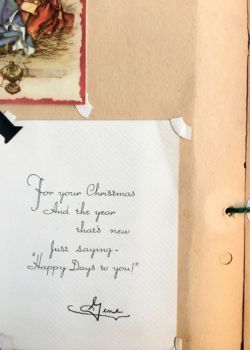 For your Christmas
And the year
that's new
Just saying-
"Happy Days to you!"
Gene